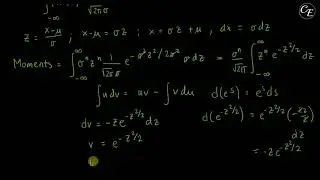 -∞ √2πσ
z = x-μ/σ ; x-μ = σz ; x = σz + μ , dx = σdz
Moments = ∫_{-∞}^{∞} σⁿ zⁿ 1/√2πσ e^{-σ²z²/2σ²} σ dz = σⁿ/√2π ∫_{-∞}^{∞} zⁿ e^{-z²/2} dz
∫u dv = uv - ∫v du d(eˢ) = eˢ ds
dv = -z e^{-z²/2} dz d(e^{-z²/2}) = e^{-z²/2} (-2z/2) dz
v = e^{-z²/2} = -z e^{-z²/2}
CE